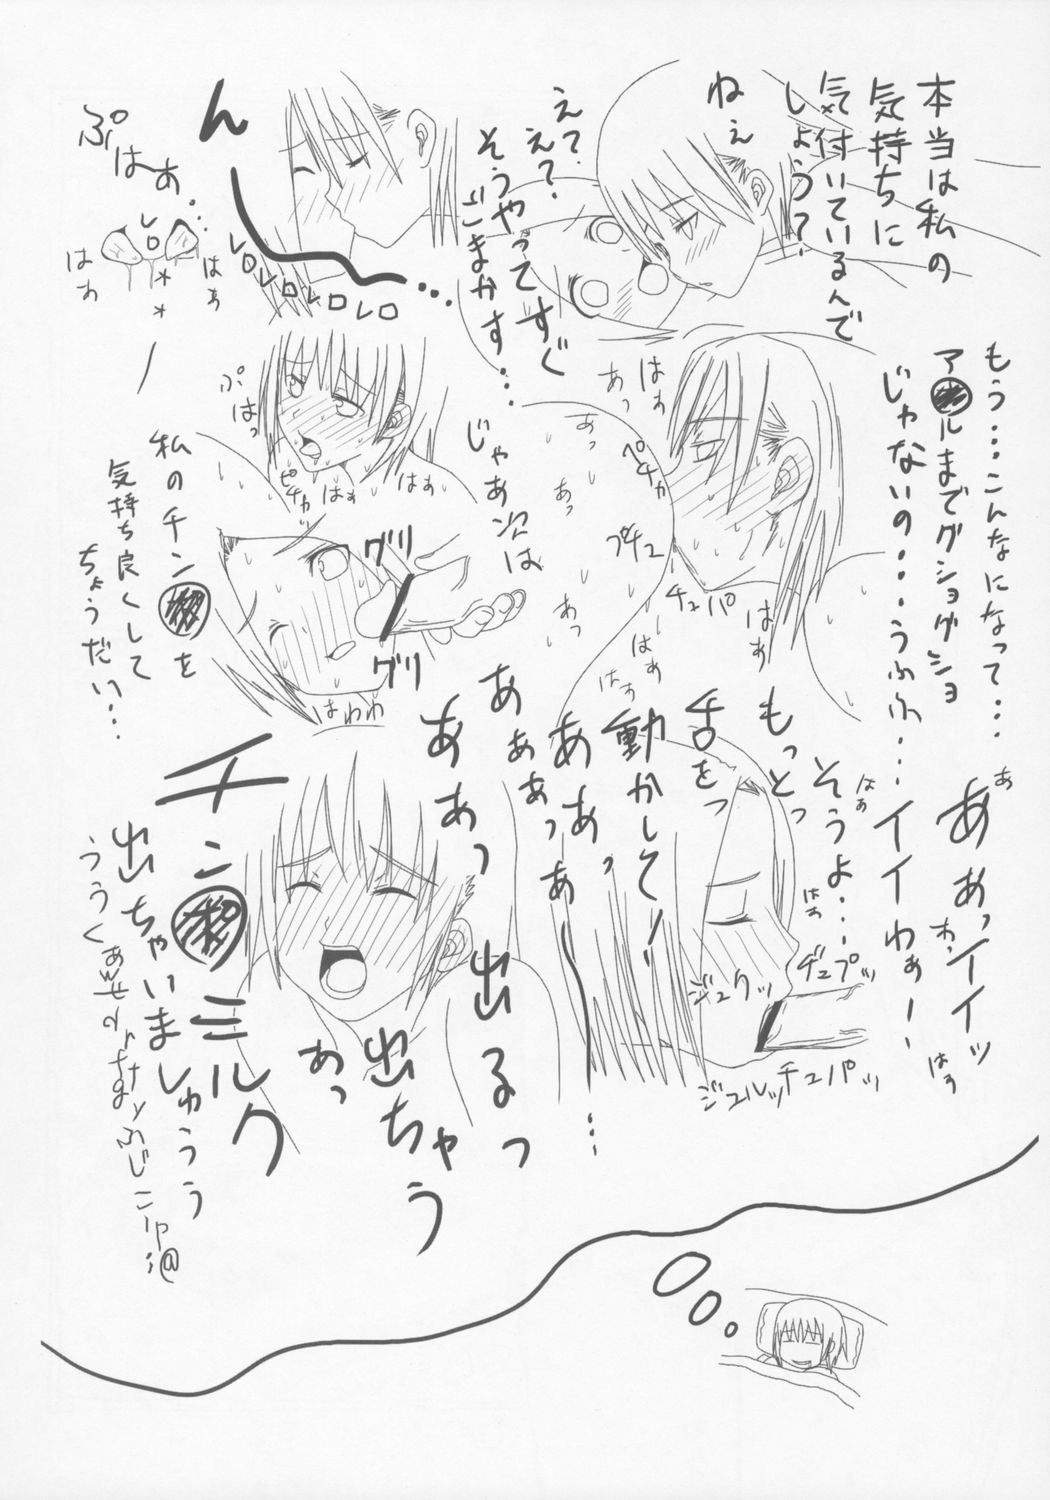 本当は私の
気持ちに
気付いているんで
しょう？
ねぇ
えて？
えて？
そうやってすぐ
ごまかす…
ん
…
レロレロレロレロ
ぷはぁ…
レロ
はぁ
はぁ
もう…こんなになって…
ア●ルまでグショグショ
じゃないの…うふふ…
イイわぁー
はぁ
あっ
あっ
あっ
あっ
あっ
ペチャ
プチュ
チュパ
はぁ
はぁ
はぁ
じゃあ次は
ぷはっ
ピチャ
はぁ
はぁ
私のチン●を
気持ち良くして
ちょうだい…
グリ
グリ
はわわ
あ
あぁっイイッ
わっ
はぅ
そうよ…
もっとっ
舌をっ
動かして！
はぁ
はぁ
ヂュプッ
ジュクッ
ジュルッ
チュパッ
あぁっあー
…
あぁぁっ
ああっ
出るっ
出ちゃう
あっ
チン●ミルク
出ちゃいましゅうう